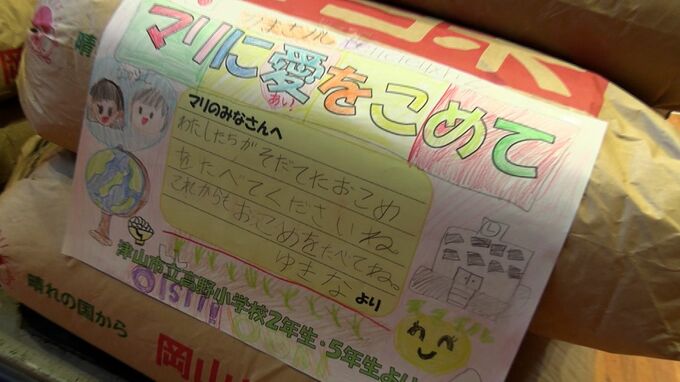 マリに愛をこめて
あい!
マリのみなさんへ
わたしたちがそだてたおこめ
をたべてくださいね
これからもおこめをたべてね。
ゆまなより
津山市立高野小学校2年生・5年生より
晴れの国から
岡山
晴
岡